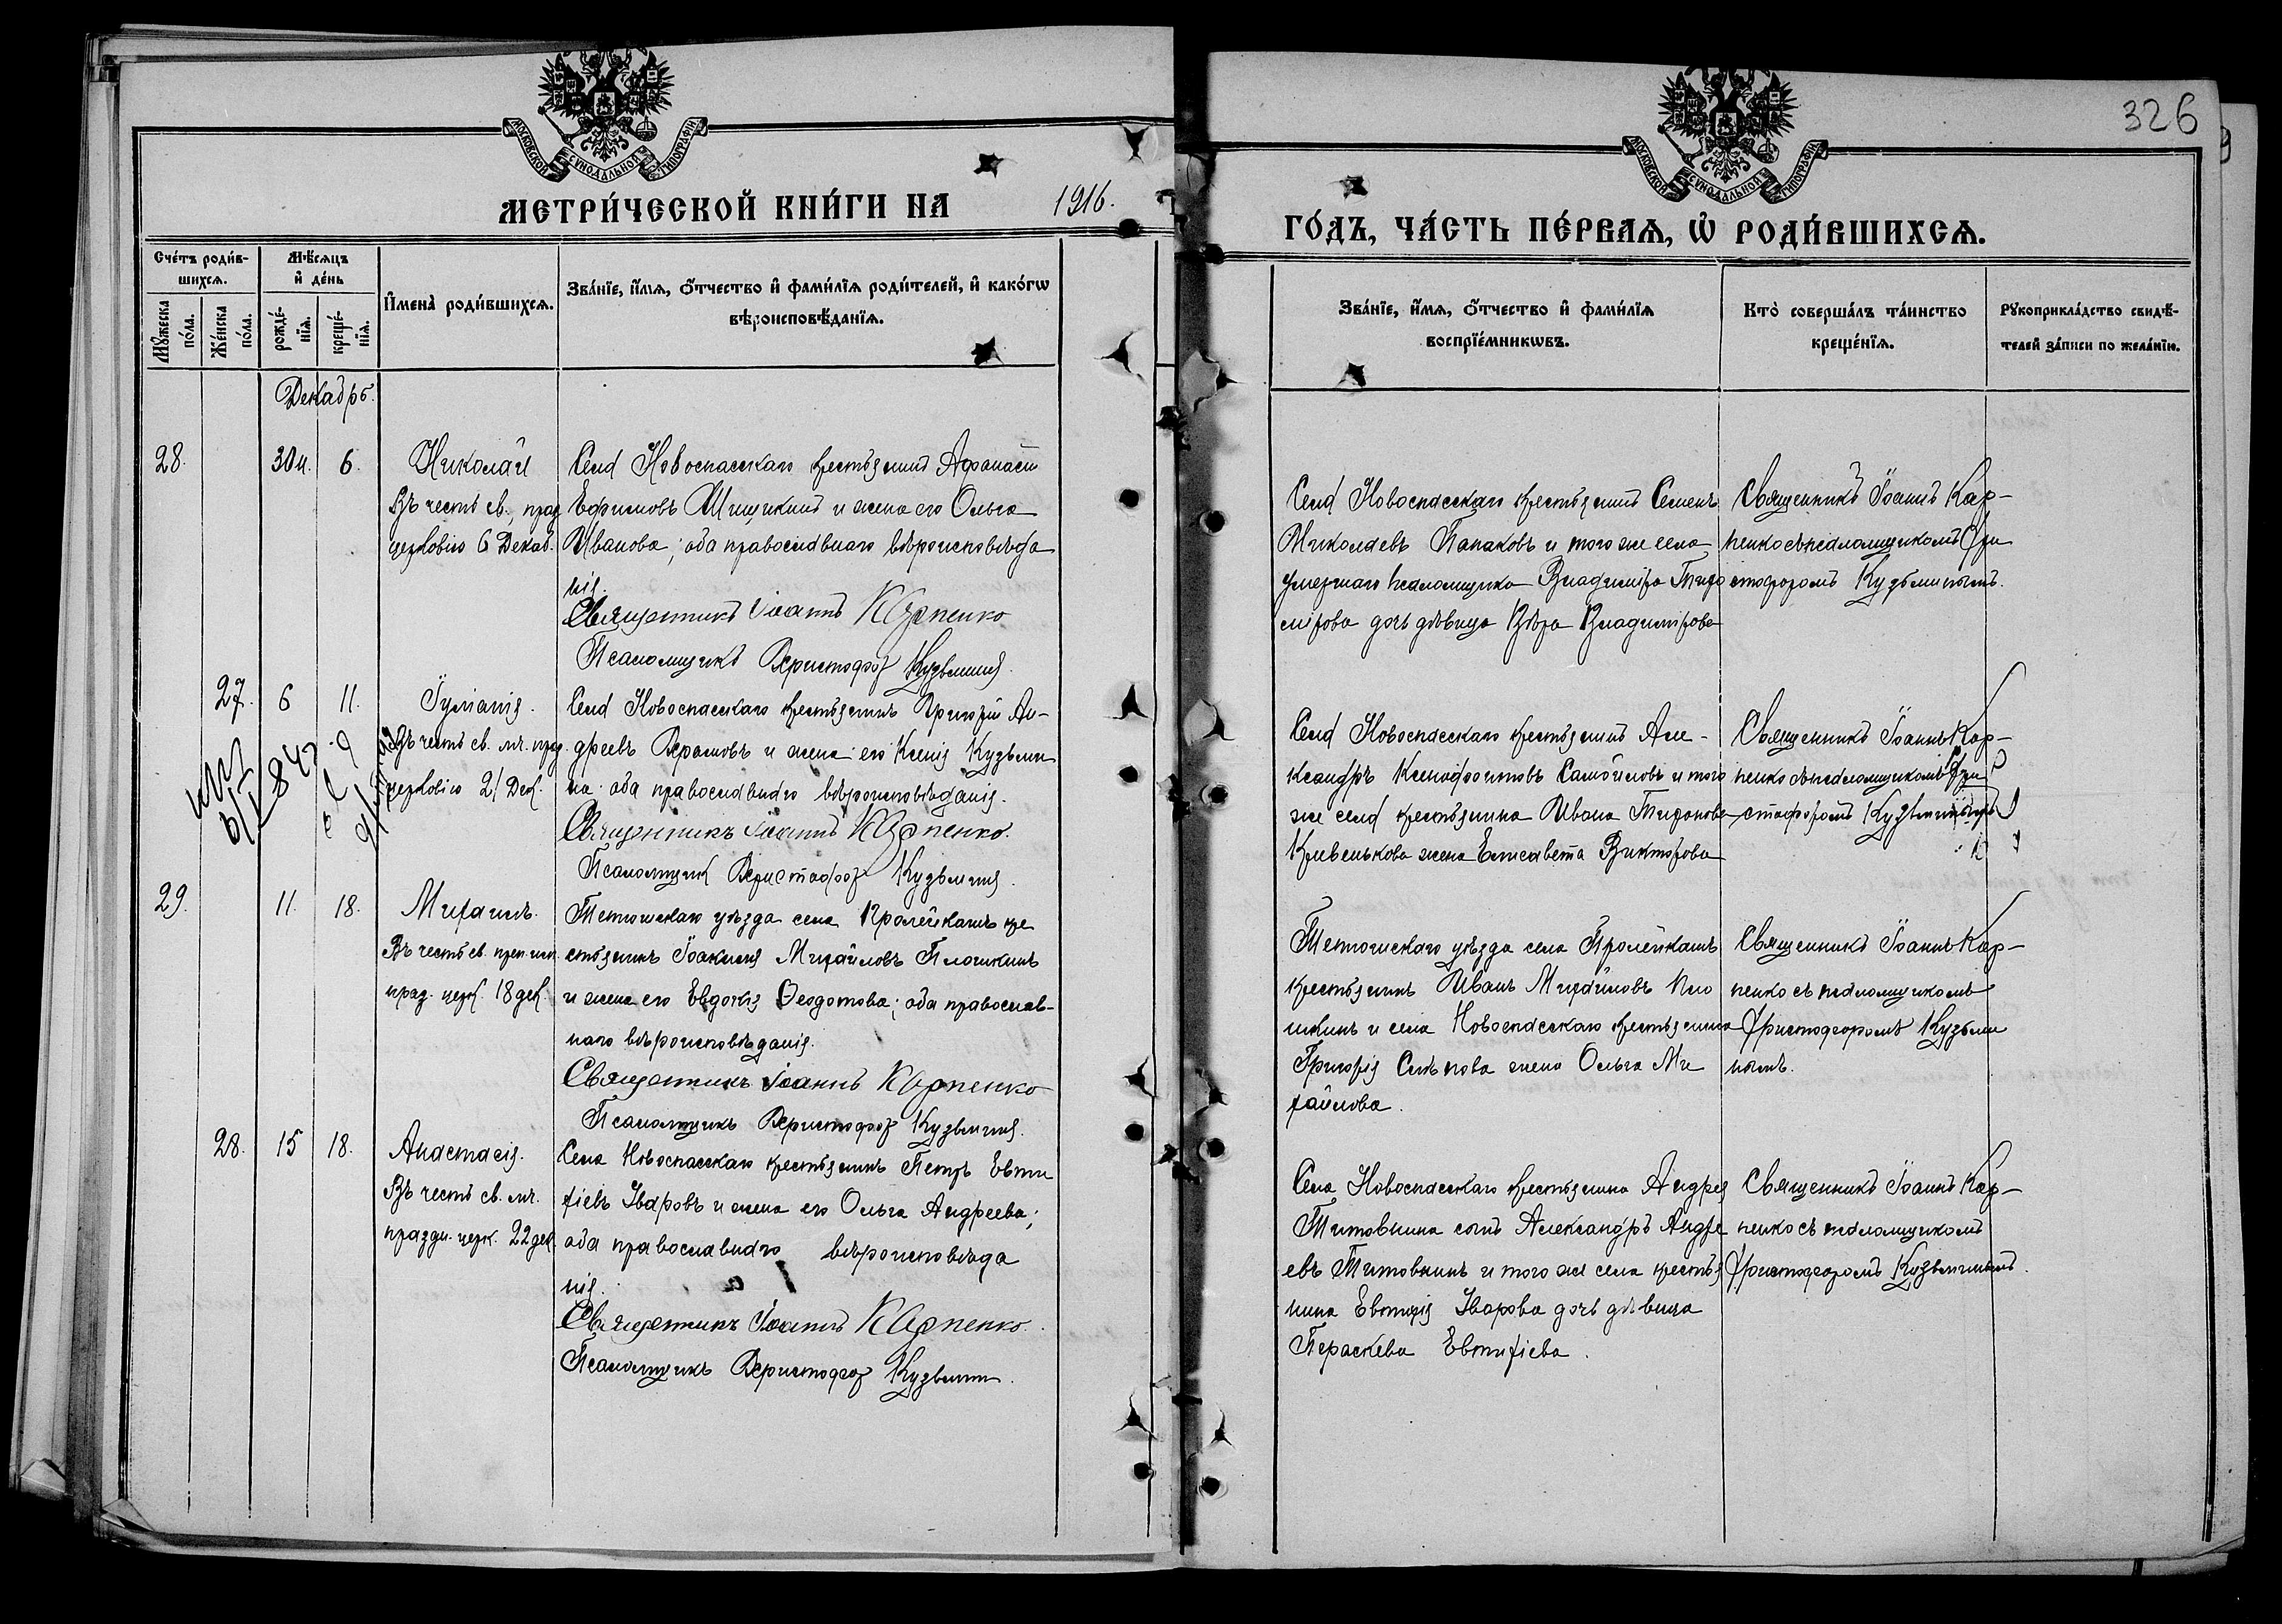 326
МОСКОВСКОЙ СѴНОДАЛЬНОЙ ТИПОГРАФІИ
МОСКОВСКОЙ СѴНОДАЛЬНОЙ ТИПОГРАФІИ
МЕТРИ́ЧЕСКОЙ КНИ́ГИ НА 1916.
ГО́ДЪ, ЧА́СТЬ ПЕ́РВАѦ, Ѡ҆ РОДИ́ВШИХСѦ.
Сче́тъ роди́в-
шихсѧ.
Мꙋ́жеска по́ла.
Же́нска по́ла.
Мѣ́сѧцъ
и҆ де́нь
рожде́-
нїѧ.
креще́-
нїѧ.
И҆мена̀ роди́вшихсѧ.
Зва́нїе, и҆́мѧ, ѻ҆́тчество и҆ фами́лїѧ роди́телей, и҆ како́гѡ
вѣроисповѣ́данїѧ.
Зва́нїе, и҆́мѧ, ѻ҆́тчество и҆ фами́лїѧ
воспрїе́мникѡвъ.
Кто̀ соверша́лъ та́инство
креще́нїѧ.
Рꙋкоприкла́дство свидѣ́-
телей за́писи по жела́нїю.
Декабрь.
28. 30 н. 6.
Николай
Въ честь св., праз
церковію 6 Декаб.
Села Новоспасскаго крестьянинъ Афанасій
Ефимовъ Шищкинъ и жена его Ольга
Иванова; оба православнаго вѣроисповѣда
нія.
Священникъ Іоаннъ Карпенко
Псаломщикъ Христофор Кузьминъ.
Села Новоспасскаго крестьянинъ Семенъ
Николаевъ Папаковъ и того же села
умершаго псаломщика Владиміра Тихо
мірова дочь дѣвица Вѣра Владимірова
Священникъ Іоаннъ Кар-
пенко съ псаломщикомъ Хри
стофоромъ Кузьминымъ.
27. 6 11.
Іуліанія.
Въ честь св. мч. праз.
церковію 21 Дек.
Села Новоспасскаго крестьянинъ Григорій Ан-
дреевъ Храмовъ и жена его Ксенія Кузьми
на. оба православнаго вѣроисповѣданія.
Священникъ Іоаннъ Карпенко.
Псаломщик Христофор Кузьминъ.
Села Новоспасскаго крестьянинъ Але-
ксандръ Ксенофонтовъ Самойловъ и того
же села крестьянина Ивана Тихонова
Кривенькова жена Елисавета Викторова
Священникъ Іоаннъ Кар-
пенко съ псаломщикомъ Хри
стофоромъ Кузьминымъ
29. 11. 18.
Михаилъ.
Въ честь св. преп. исп.
праз. церк. 18 дек.
Тетюшскаго уѣзда села Пролейкашъ кре
стьянинъ Іоакимъ Михайловъ Плошкинъ
и жена его Евдокія Ѳеодотова; оба православ-
наго вѣроисповѣданія.
Священникъ Іоаннъ Карпенко
Псаломщикъ Христофор Кузьминъ.
Тетюшскаго уѣзда села Пролейкашъ
крестьянинъ Иванъ Михайловъ Пло
шкинъ и села Новоспасскаго крестьянина
Григорія жена Ольга Ми
хайлова.
Священникъ Іоаннъ Кар-
пенко съ псаломщикомъ
Христофоромъ Кузьми
нымъ.
28. 15 18.
Анастасія.
Въ честь св. мч.
праздн. церк. 22 дек.
Села Новоспасскаго крестьянинъ Петръ Евти
хіевъ Уваровъ и жена его Ольга Андреева;
оба православнаго вѣроисповѣда
нія.
Священникъ Іоаннъ Карпенко.
Псаломщикъ Христофор Кузьмин.
Села Новоспасскаго крестьянина Андрея
Титовнина сынъ Александръ Андре
евъ Титовнинъ и того же села крестья
нина Евтихія Уварова дочь дѣвица
Параскева Евтихіева.
Священникъ Іоаннъ Кар-
пенко съ псаломщикомъ
Христофоромъ Кузьминымъ.